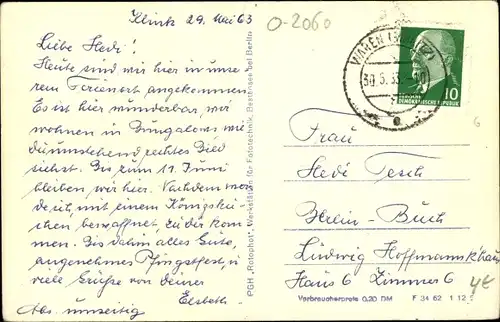 Klink 29. Mai 63
O-2060
Liebe Hedi!
Heute sind wir hier in unse
rem Ferienort angekommen.
Es ist hier wunderbar, wir
wohnen in Bungalows wie
du umstehend rechtes Bild
siehst. Bis zum 11. Juni
bleiben wir hier. Nachdem wer
de ich, mit einem Königsku
chen bewaffnet, zu dir kom
men. Bis dahin alles Gute,
angenehmes Pfingstfest, u
viele Grüße von deiner
Elsbeth
Abs. umseitig
PGH „Rotophot", Werkstätten für Fototechnik, Bestensee bei Berlin
WAREN
30.5.63
DEUTSCHE
DEMOKRATISCHE REPUBLIK 10
Frau
Hedi Tesch
Berlin-Buch
Ludwig Hoffmannskhaus
Haus 6 Zimmer 6
Verbraucherpreis 0,20 DM F 34 62 1 12
4€
6